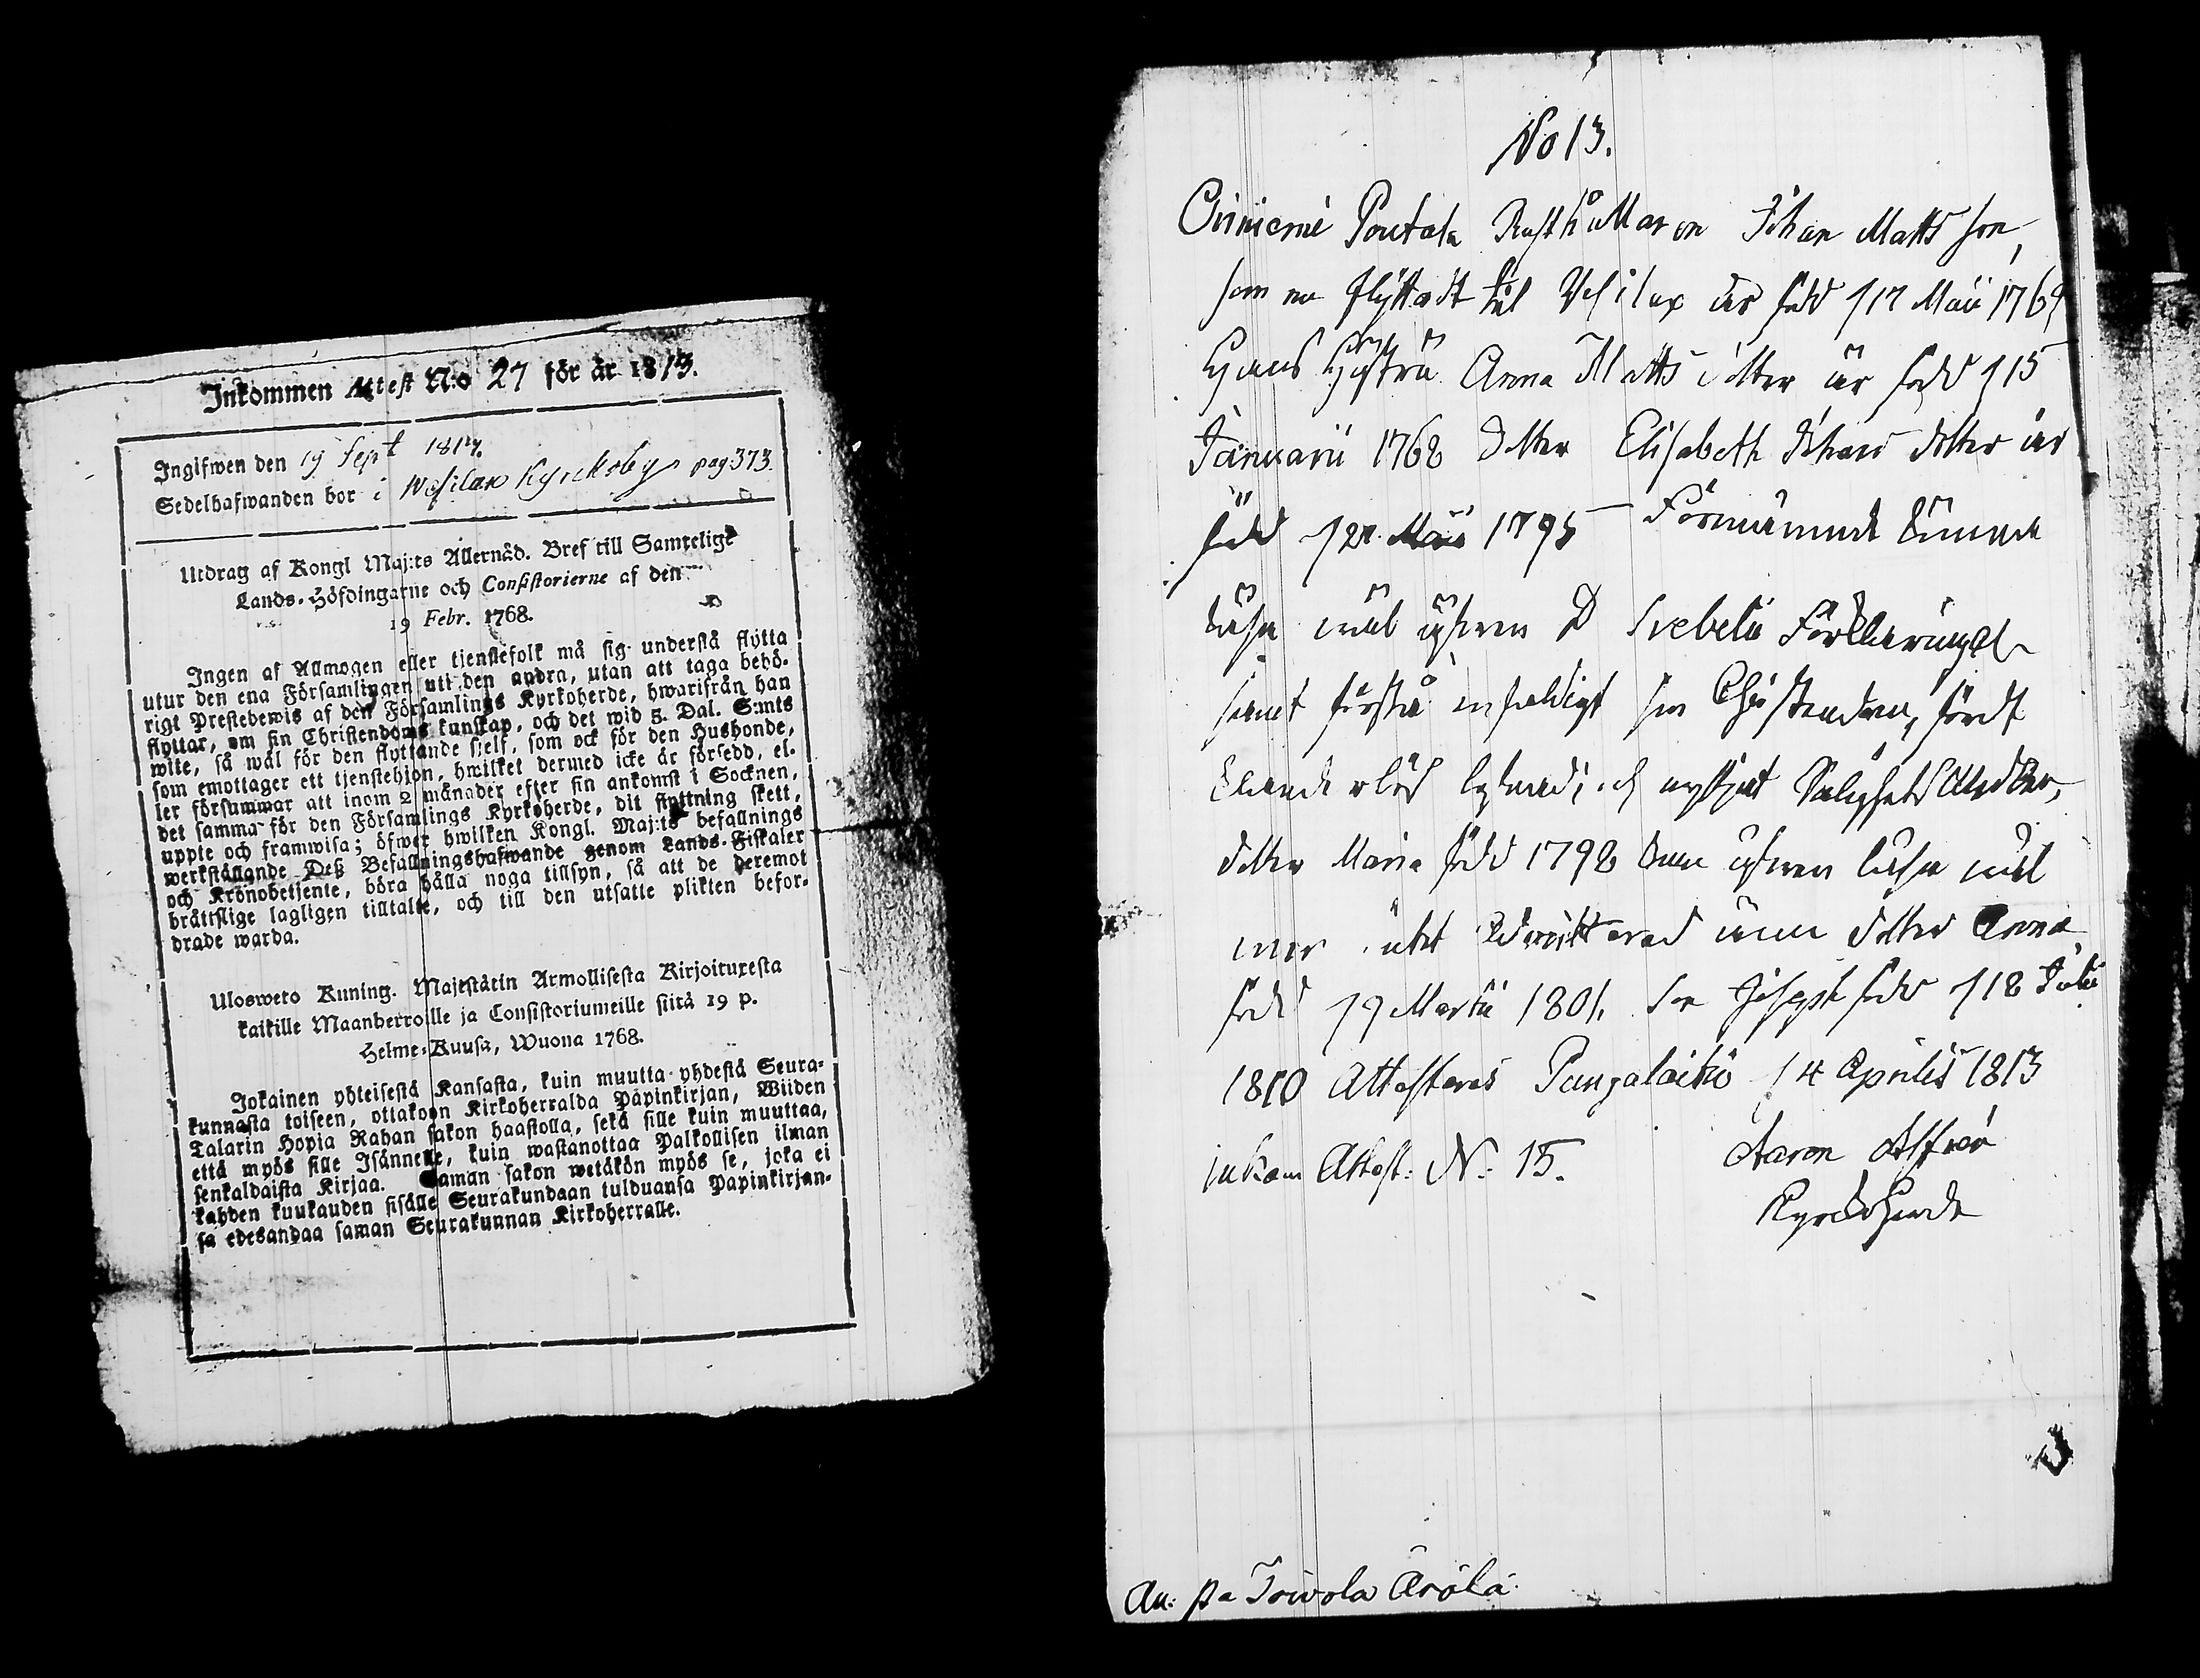 Inkommen Attest N:o 27 för år 1813.
Ingifwen den 19 Sept 1817.
Sedelhafwanden bor i Wesilax Kyrckoby pag 373.
Utdrag af Kongl Maj:ts Allernåd. Bref till Samtelige
Lands-Höfdingarne och Consistorierne af den
19 Febr. 1768.
Ingen af Allmogen eller tjenstefolk må sig understå flytta
utur den ena Församlingen uti den andra, utan att taga behö-
rigt Prestebewis af den Församlings Kyrkoherde, hwarifrån han
flyttar, om sin Christendoms kunskap, och det wid 5. Dal. S:mts
wite, så wäl för den flyttande sjelf, som ock för den Husbonde,
som emottager ett tjenstehjon, hwilket dermed icke är försedd, el-
ler försummar att inom 2 månader efter sin ankomst i Socknen,
det samma för den Församlings Kyrkoherde, dit flyttning skett,
uppte och framwisa; öfwer hwilken Kongl. Maj:ts befallnings
werkställande Deß Befallningshafwande genom Lands-Fiskaler
och Kronobetjente, böra hålla noga tillsyn, så att de deremot
bråttslige lagligen tilltalte, och till den utsatte plikten befor-
drade warda.
Ulosweto Kuning. Majestätin Armollisesta Kirjoituxesta
kaikille Maanherroille ja Consistoriumeille siitä 19 p.
Helme-Kuusa, Wuona 1768.
Jokainen yhteisestä Kansasta, kuin muutta yhdestä Seura-
kunnasta toiseen, ottakoon Kirkoherralda Papinkirjan, Wiiden
Talarin Hopia Rahan sakon haastolla, sekä sille kuin muuttaa,
että myös sille Isännelle, kuin wastanottaa Palkollisen ilman
senkaldaista Kirjaa. Saman sakon wetäkön myös se, joka ei
kahden kuukauden sisälle Seurakundaan tulduansa Papinkirjan-
sa edesandaa saman Seurakunnan Kirkoherralle.
No 13.
Pontala Rusthållaren Johan Matts son,
som nu flyttadt til Vesilax är född 17 Maii 1769
Hans Hustru Anna Matts dotter är född 15
Januarii 1768 Dotter Elisabeth Johans dotter är
född 12 Maii 1795 Förnämnde kunna
läsa wäl utwan D Svebelii Förklaringh
samt förstå enfaldigt sin Christendom, fördt
lefnad, och nyttjat Salighets Medlen,
dotter Maria född 1798 kan utwan läsa wäl
men icke admitterad ännu dotter Anna
född 19 Martii 1801. Son Joseph född 18 Julii
1810 Attesteras Pungalaitio 14 Aprilis 1813
inkom Attest: N: 15.
Aaron
KyrckoHerde
An: på Toivola Ärölä